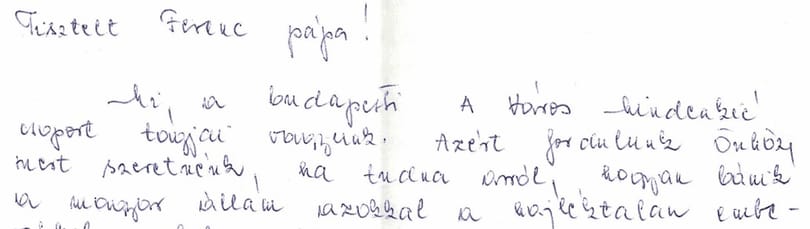 Tisztelt Ferenc pápa!
Mi, a budapesti A Város Mindenkié
csoport tagjai vagyunk. Azért fordulunk Önhöz,
mert szeretnénk, ha tudna arról, hogyan bánik
a magyar állam azokkal a hajléktalan embe-